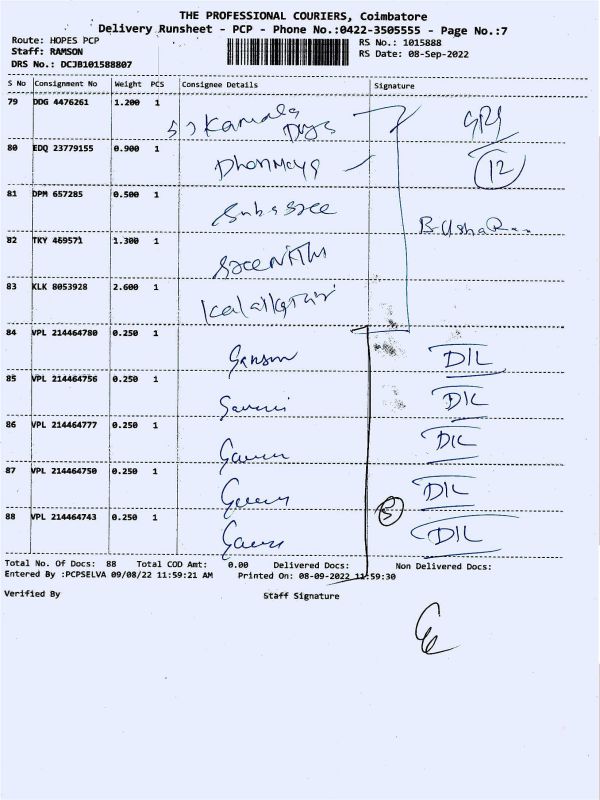 THE PROFESSIONAL COURIERS, Coimbatore
Delivery Runsheet - PCP - Phone No.:0422-3505555 - Page No.:7
Route: HOPES PCP
Staff: RAMSON
DRS No.: DCJB101588807
RS No.: 1015888
RS Date: 08-Sep-2022
S No Consignment No Weight PCS Consignee Details Signature
79 DDG 4476261 1.200 1 Kamala
80 EDQ 23779155 0.900 1 12
81 DPM 657285 0.500 1 Subasree
82 TKY 469571 1.300 1
83 KLK 8053928 2.600 1
84 VPL 214464780 0.250 1 D/L
85 VPL 214464756 0.250 1 D/L
86 VPL 214464777 0.250 1 D/L
87 VPL 214464750 0.250 1 D/L
5
88 VPL 214464743 0.250 1 D/L
Total No. Of Docs: 88 Total COD Amt: 0.00 Delivered Docs: Non Delivered Docs:
Entered By :PCPSELVA 09/08/22 11:59:21 AM Printed On: 08-09-2022 11:59:30
Verified By Staff Signature